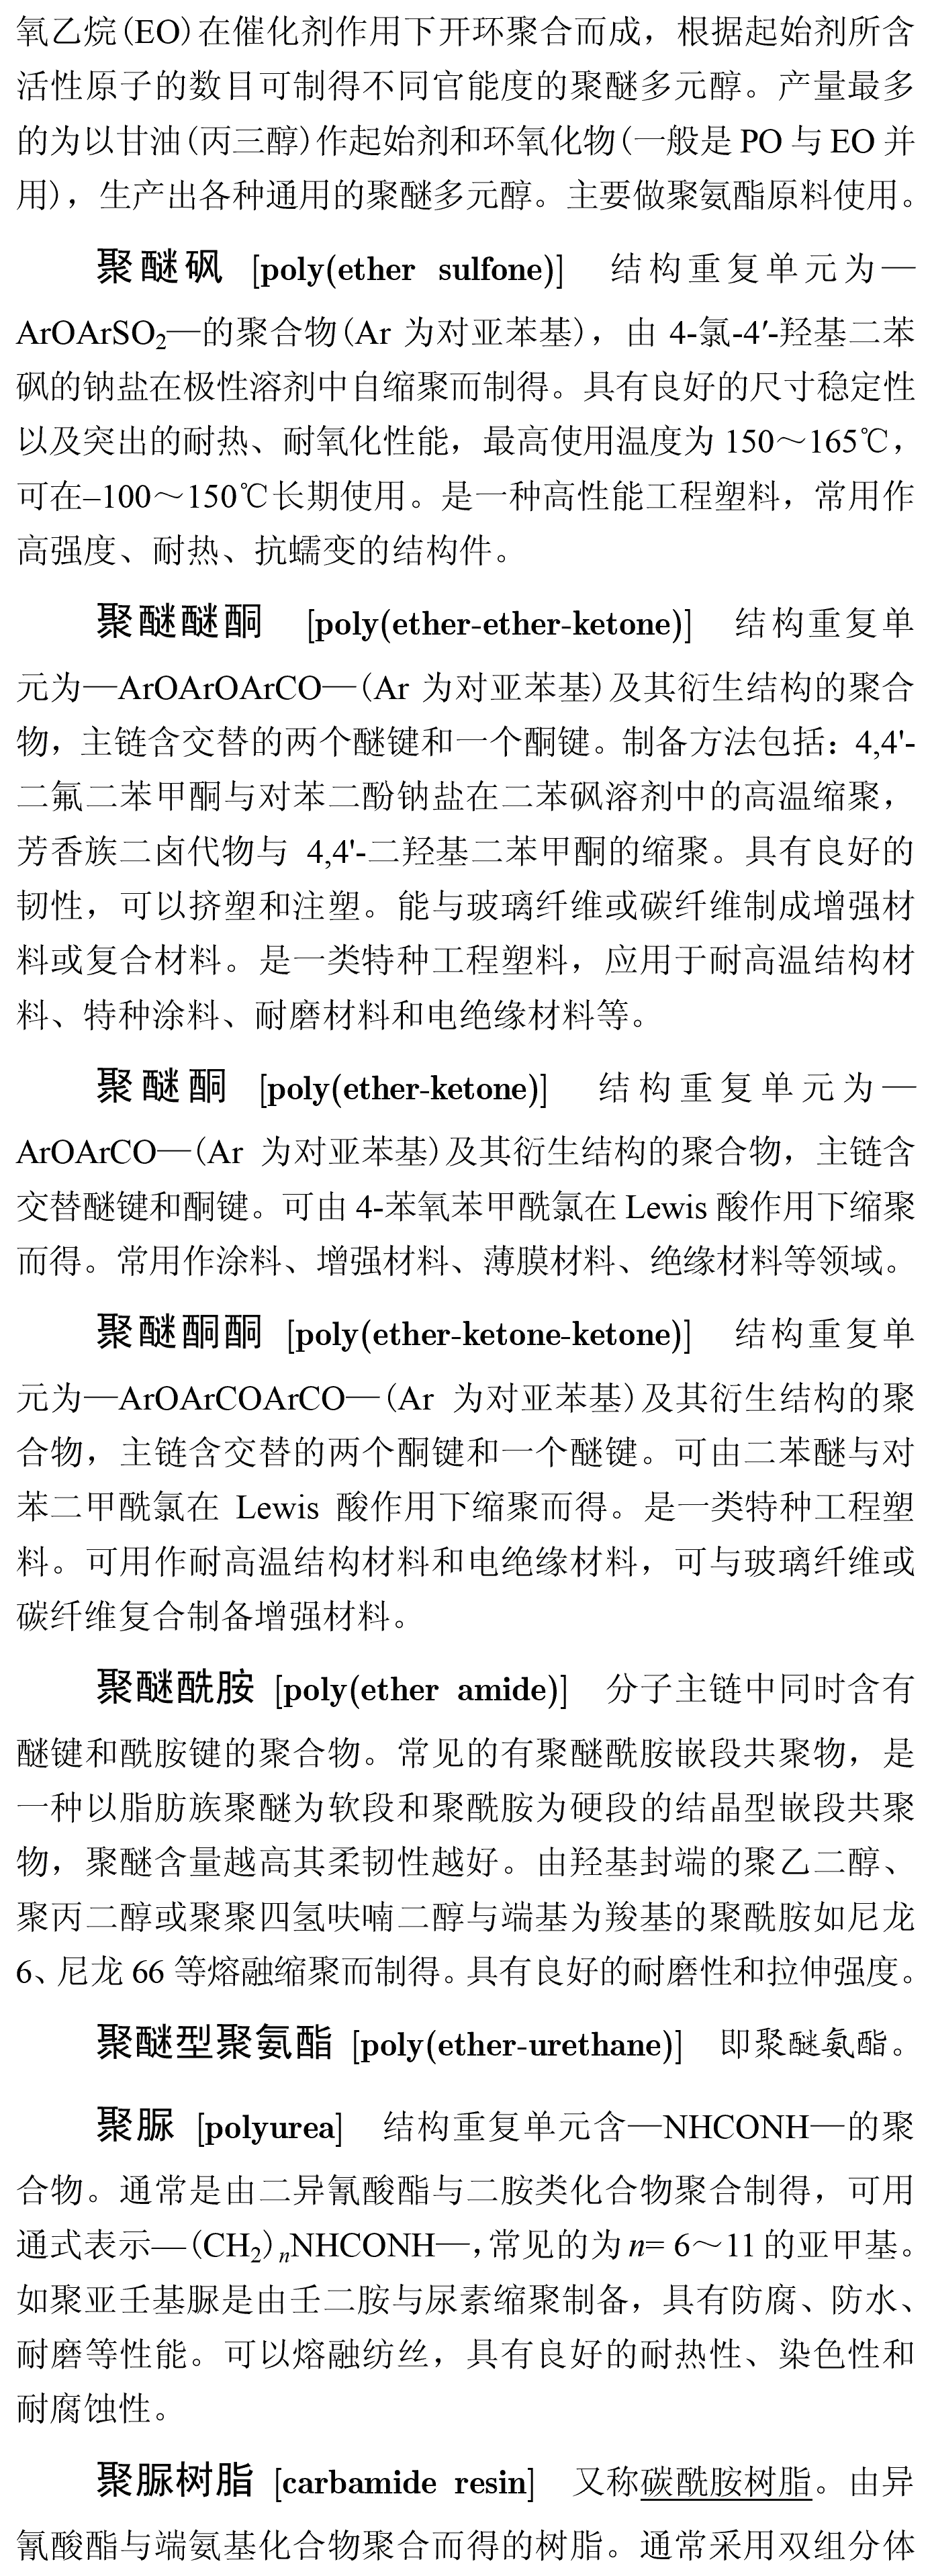 氧乙烷(EO)在催化剂作用下开环聚合而成，根据起始剂所含
活性原子的数目可制得不同官能度的聚醚多元醇。产量最多
的为以甘油(丙三醇)作起始剂和环氧化物(一般是 PO 与 EO 并
用)，生产出各种通用的聚醚多元醇。主要做聚氨酯原料使用。
聚醚砜 [poly(ether sulfone)] 结构重复单元为—
ArOArSO₂—的聚合物(Ar 为对亚苯基)，由 4-氯-4′-羟基二苯
砜的钠盐在极性溶剂中自缩聚而制得。具有良好的尺寸稳定性
以及突出的耐热、耐氧化性能，最高使用温度为 150～165℃，
可在–100～150℃长期使用。是一种高性能工程塑料，常用作
高强度、耐热、抗蠕变的结构件。
聚醚醚酮 [poly(ether-ether-ketone)] 结构重复单
元为—ArOArOArCO—(Ar 为对亚苯基)及其衍生结构的聚合
物，主链含交替的两个醚键和一个酮键。制备方法包括：4,4'-
二氟二苯甲酮与对苯二酚钠盐在二苯砜溶剂中的高温缩聚，
芳香族二卤代物与 4,4'-二羟基二苯甲酮的缩聚。具有良好的
韧性，可以挤塑和注塑。能与玻璃纤维或碳纤维制成增强材
料或复合材料。是一类特种工程塑料，应用于耐高温结构材
料、特种涂料、耐磨材料和电绝缘材料等。
聚醚酮 [poly(ether-ketone)] 结构重复单元为—
ArOArCO—(Ar 为对亚苯基)及其衍生结构的聚合物，主链含
交替醚键和酮键。可由 4-苯氧苯甲酰氯在 Lewis 酸作用下缩聚
而得。常用作涂料、增强材料、薄膜材料、绝缘材料等领域。
聚醚酮酮 [poly(ether-ketone-ketone)] 结构重复单
元为—ArOArCOArCO—(Ar 为对亚苯基)及其衍生结构的聚
合物，主链含交替的两个酮键和一个醚键。可由二苯醚与对
苯二甲酰氯在 Lewis 酸作用下缩聚而得。是一类特种工程塑
料。可用作耐高温结构材料和电绝缘材料，可与玻璃纤维或
碳纤维复合制备增强材料。
聚醚酰胺 [poly(ether amide)] 分子主链中同时含有
醚键和酰胺键的聚合物。常见的有聚醚酰胺嵌段共聚物，是
一种以脂肪族聚醚为软段和聚酰胺为硬段的结晶型嵌段共聚
物，聚醚含量越高其柔韧性越好。由羟基封端的聚乙二醇、
聚丙二醇或聚聚四氢呋喃二醇与端基为羧基的聚酰胺如尼龙
6、尼龙 66 等熔融缩聚而制得。具有良好的耐磨性和拉伸强度。
聚醚型聚氨酯 [poly(ether-urethane)] 即聚醚氨酯。
聚脲 [polyurea] 结构重复单元含—NHCONH—的聚
合物。通常是由二异氰酸酯与二胺类化合物聚合制得，可用
通式表示—(CH₂)ₙNHCONH—，常见的为 n= 6～11 的亚甲基。
如聚亚壬基脲是由壬二胺与尿素缩聚制备，具有防腐、防水、
耐磨等性能。可以熔融纺丝，具有良好的耐热性、染色性和
耐腐蚀性。
聚脲树脂 [carbamide resin] 又称碳酰胺树脂。由异
氰酸酯与端氨基化合物聚合而得的树脂。通常采用双组分体